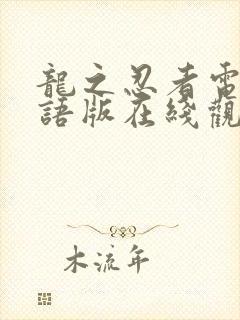 龍之忍者電
語版在綫觀
木流年